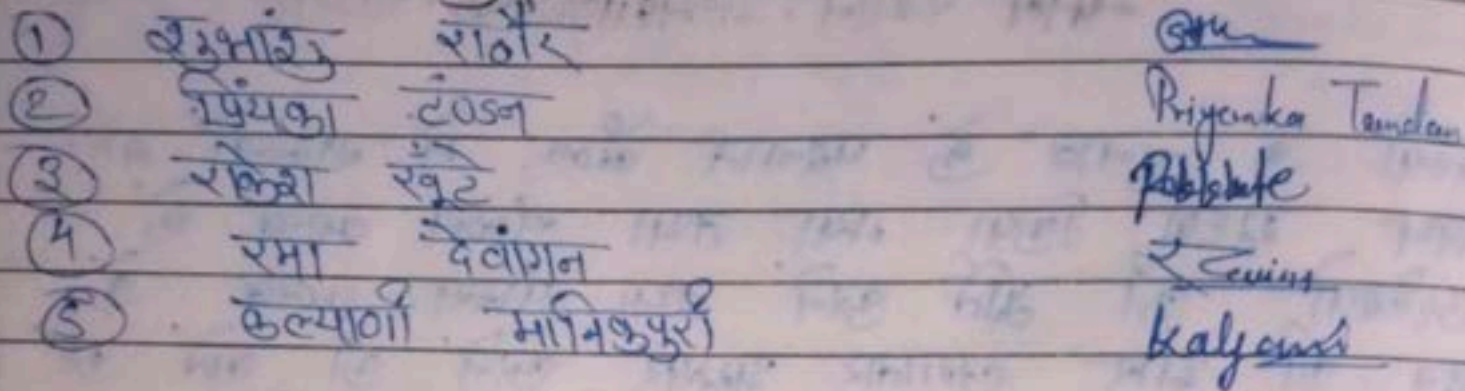 ① शुभांशु राठौर
② प्रियंका टण्डन Priyanka Tandan
③ राकेश खूंटे
④ रमा देवांगन
⑤ कल्याणी मानिकपुरी Kalyani